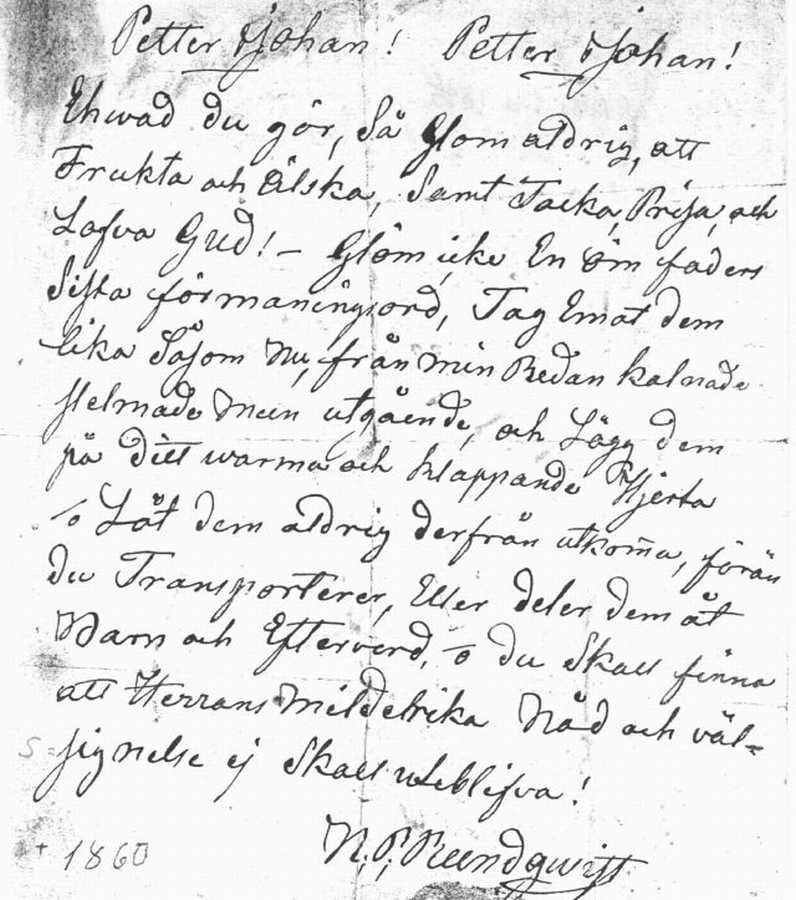 Petter Johan! Petter Johan!
Ehwad du gör, Så Glöm aldrig, att
Frukta och älska, Samt Tacka, Prisa, och
Lofva Gud! – Glöm icke En öm faders
Sista förmaningsord, Tag Emot dem
lika Såsom Nu, från min Redan kalnade
stelnade Mun utgående, och Lägg dem
på Ditt warma och klappande Hjerta
Låt dem aldrig derfrån utkom̅a, förän
du Transporterer, Eller deler dem åt
Barn och Efterverd, du Skall finna
att Herrans Mildelrika Nåd och väl=
S= signelse ej Skall uteblifva!
+ 1860 N. P. Rundqwist